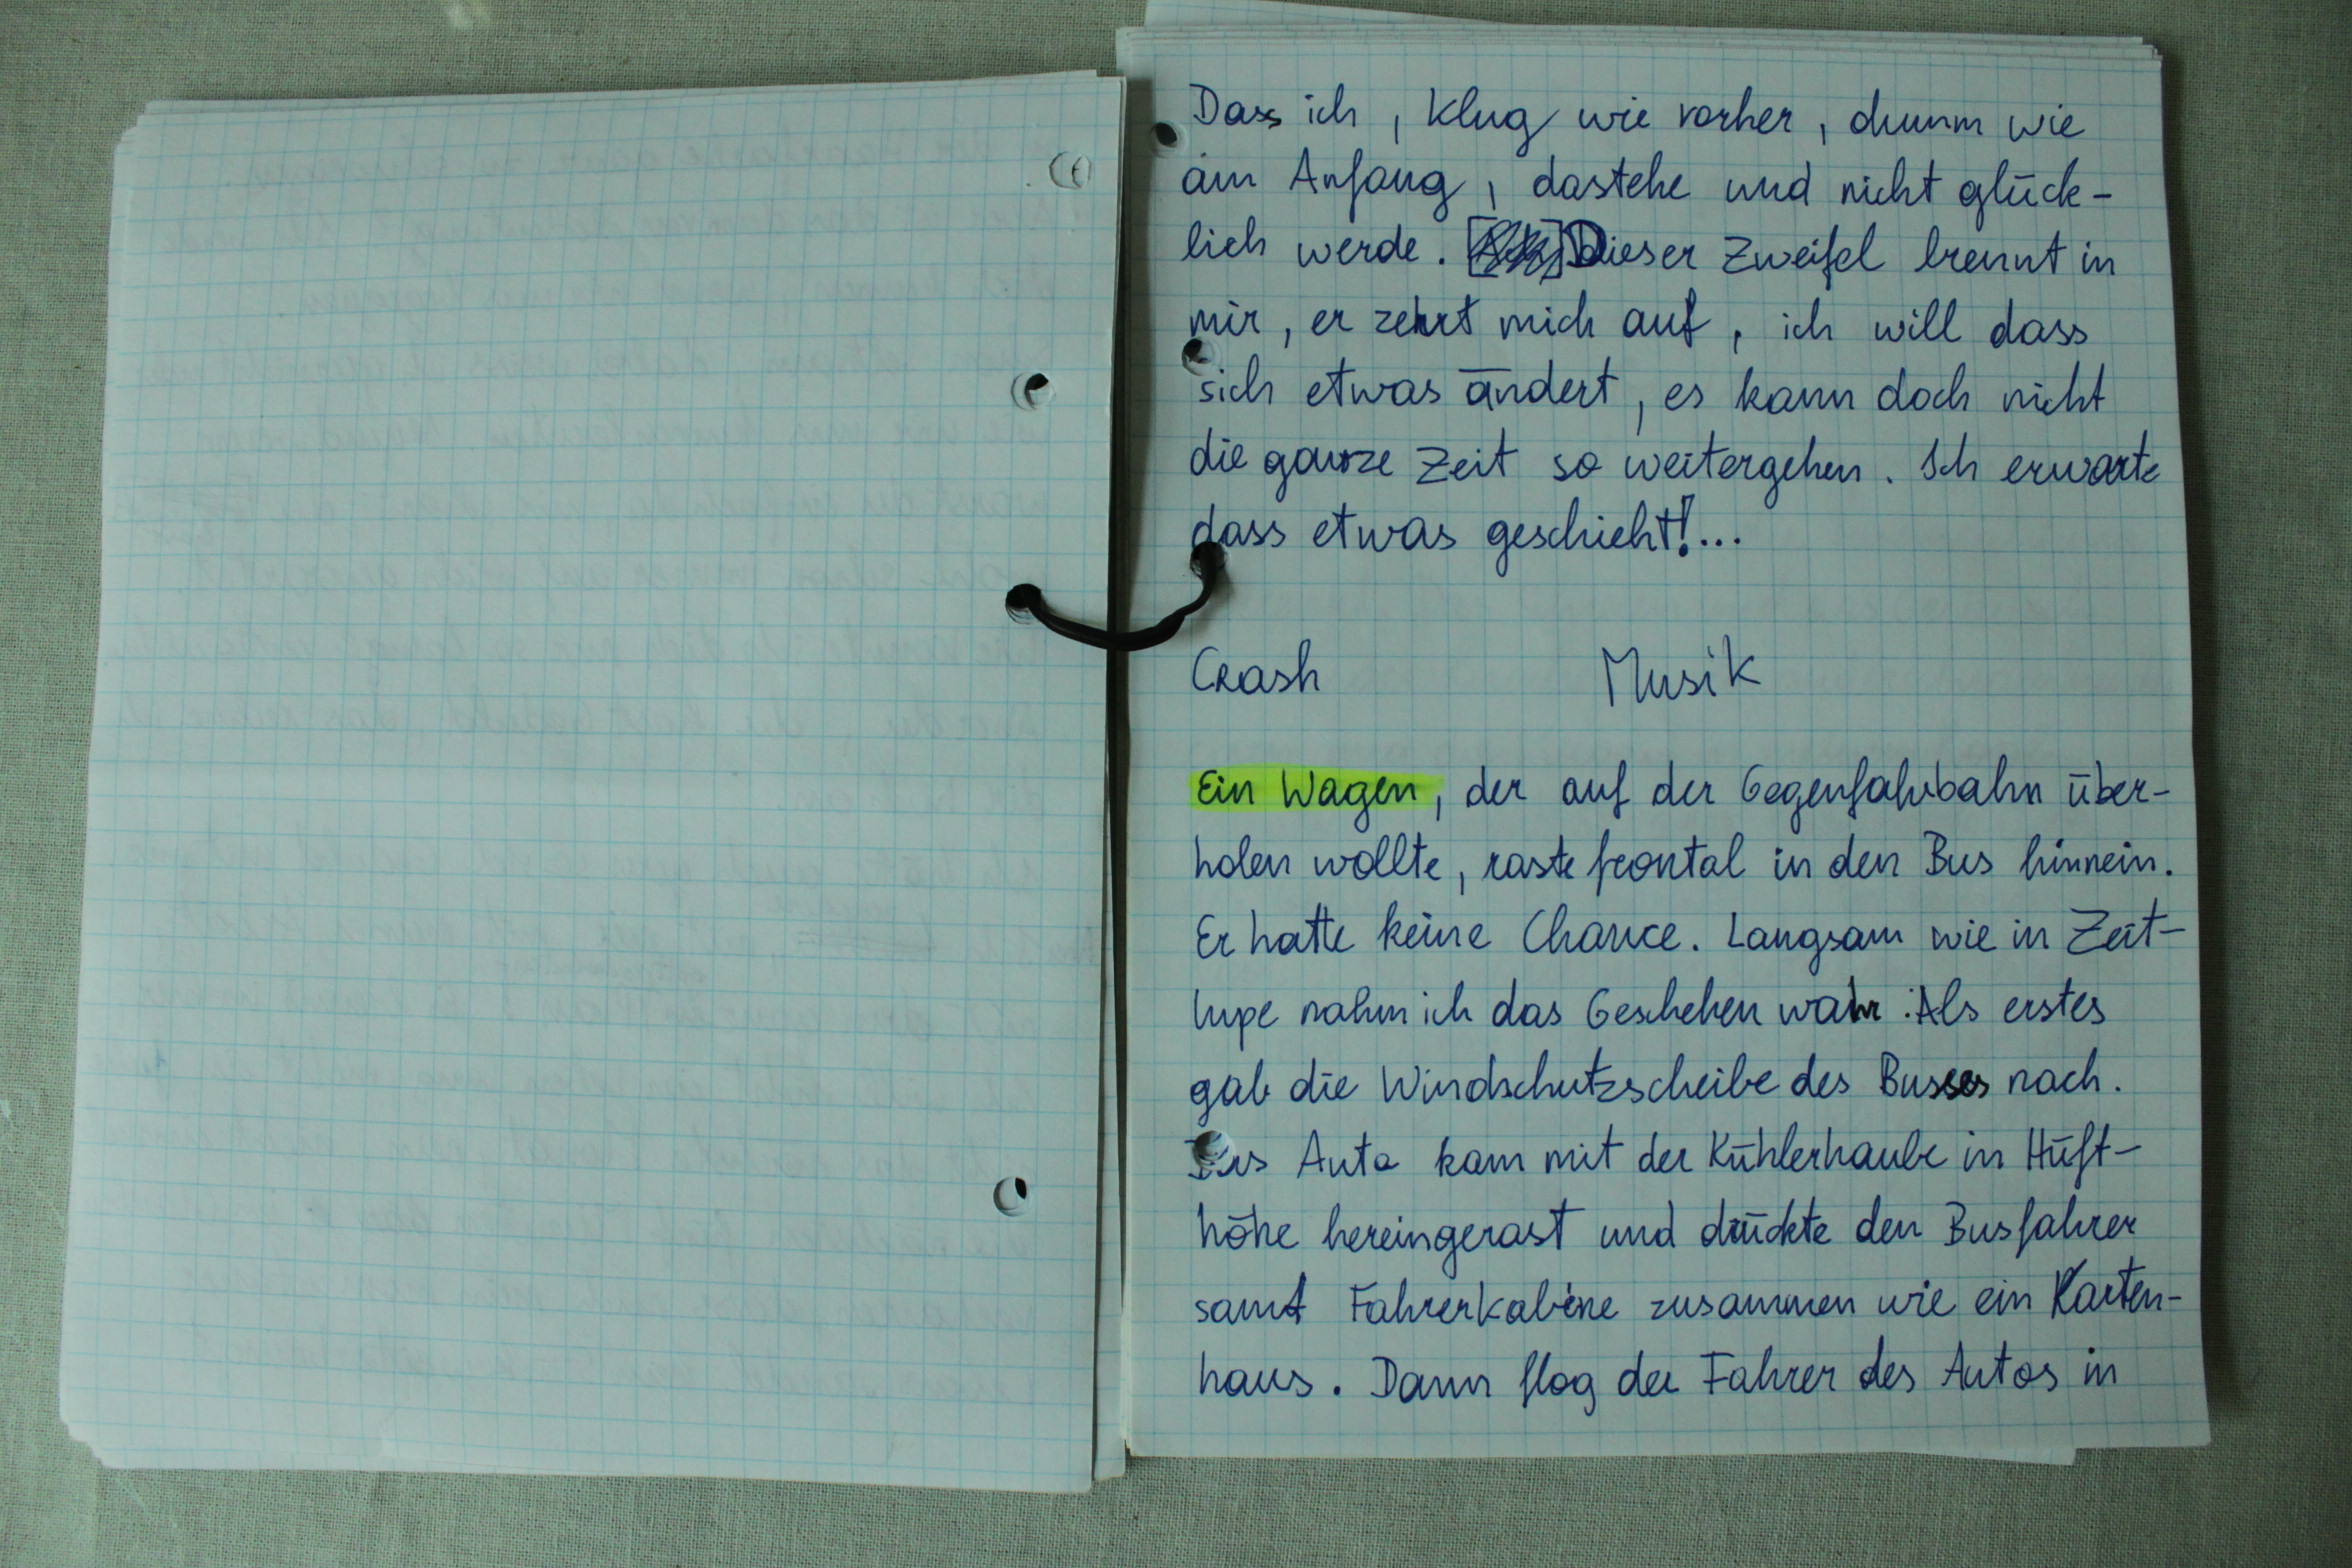 Dass ich, klug wie vorher, dumm wie
am Anfang, dastehe und nicht glück-
lich werde. Dieser Zweifel brennt in
mir, er zehrt mich auf, ich will dass
sich etwas ändert, es kann doch nicht
die ganze Zeit so weitergehen. Ich erwarte
dass etwas geschieht!...
Crash Musik
Ein Wagen, der auf der Gegenfahrbahn über-
holen wollte, raste frontal in den Bus hinnein.
Er hatte keine Chance. Langsam wie in Zeit-
lupe nahm ich das Geschehen wahr. Als erstes
gab die Windschutzscheibe des Busses nach.
Das Auto kam mit der Kühlerhaube in Hüft-
höhe hereingerast und drückte den Busfahrer
samt Fahrerkabine zusammen wie ein Karten-
haus. Dann flog der Fahrer des Autos in